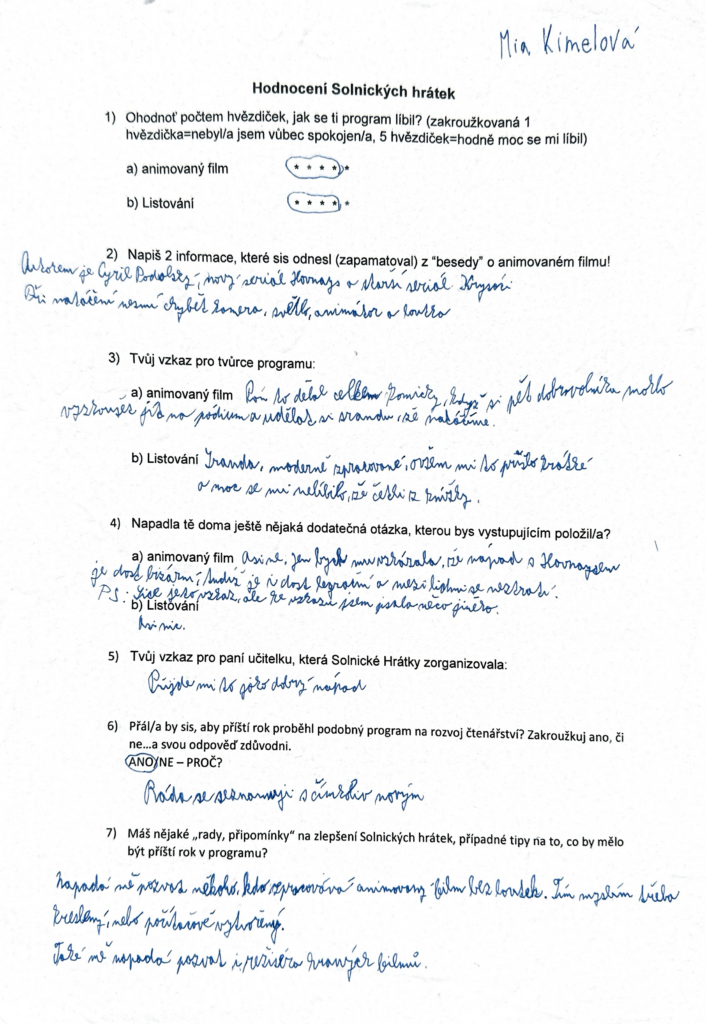 Mia Kimelová
Hodnocení Solnických hrátek
1) Ohodnoť počtem hvězdiček, jak se ti program líbil? (zakroužkovaná 1
hvězdička=nebyl/a jsem vůbec spokojen/a, 5 hvězdiček=hodně moc se mi líbil)
a) animovaný film * * * * *
b) Listování * * * * *
2) Napiš 2 informace, které sis odnesl (zapamatoval) z "besedy" o animovaném filmu!
Autorem je Cyril Podolský, nový seriál Hovnajs a starší seriál Krysáci
Při natáčení nesmí chybět kamera, světlo, animátor a loutka
3) Tvůj vzkaz pro tvůrce programu:
a) animovaný film Pán to dělal celkem komicky, když si pět dobrovolníků mohlo
vyzkoušet jít na pódium a udělat si srandu, že natáčíme.
b) Listování Sranda, moderně zpracované, ovšem mi to přišlo krátké
a moc se mi nelíbilo, že četli z knížky.
4) Napadla tě doma ještě nějaká dodatečná otázka, kterou bys vystupujícím položil/a?
a) animovaný film Asi ne, jen bych mu vzkázala, že nápad s Hovnajsem
je dost bizární, tudíž je i dost legrační a mezi lidmi se neztratí.
PS: Sice je to vzkaz, ale ke vzkazu jsem psala něco jiného.
b) Listování
Asi nic.
5) Tvůj vzkaz pro paní učitelku, která Solnické Hrátky zorganizovala:
Přijde mi to jako dobrý nápad
6) Přál/a by sis, aby příští rok proběhl podobný program na rozvoj čtenářství? Zakroužkuj ano, či
ne...a svou odpověď zdůvodni.
ANO/NE – PROČ?
Ráda se seznamuji s čímkoliv novým
7) Máš nějaké „rady, připomínky" na zlepšení Solnických hrátek, případné tipy na to, co by mělo
být příští rok v programu?
Napadá mě pozvat někoho, kdo zpracovává animovaný film bez loutek. Tím myslím třeba
kreslený, nebo počítačově vytvořený.
Také mě napadá pozvat i režiséra hraných filmů.